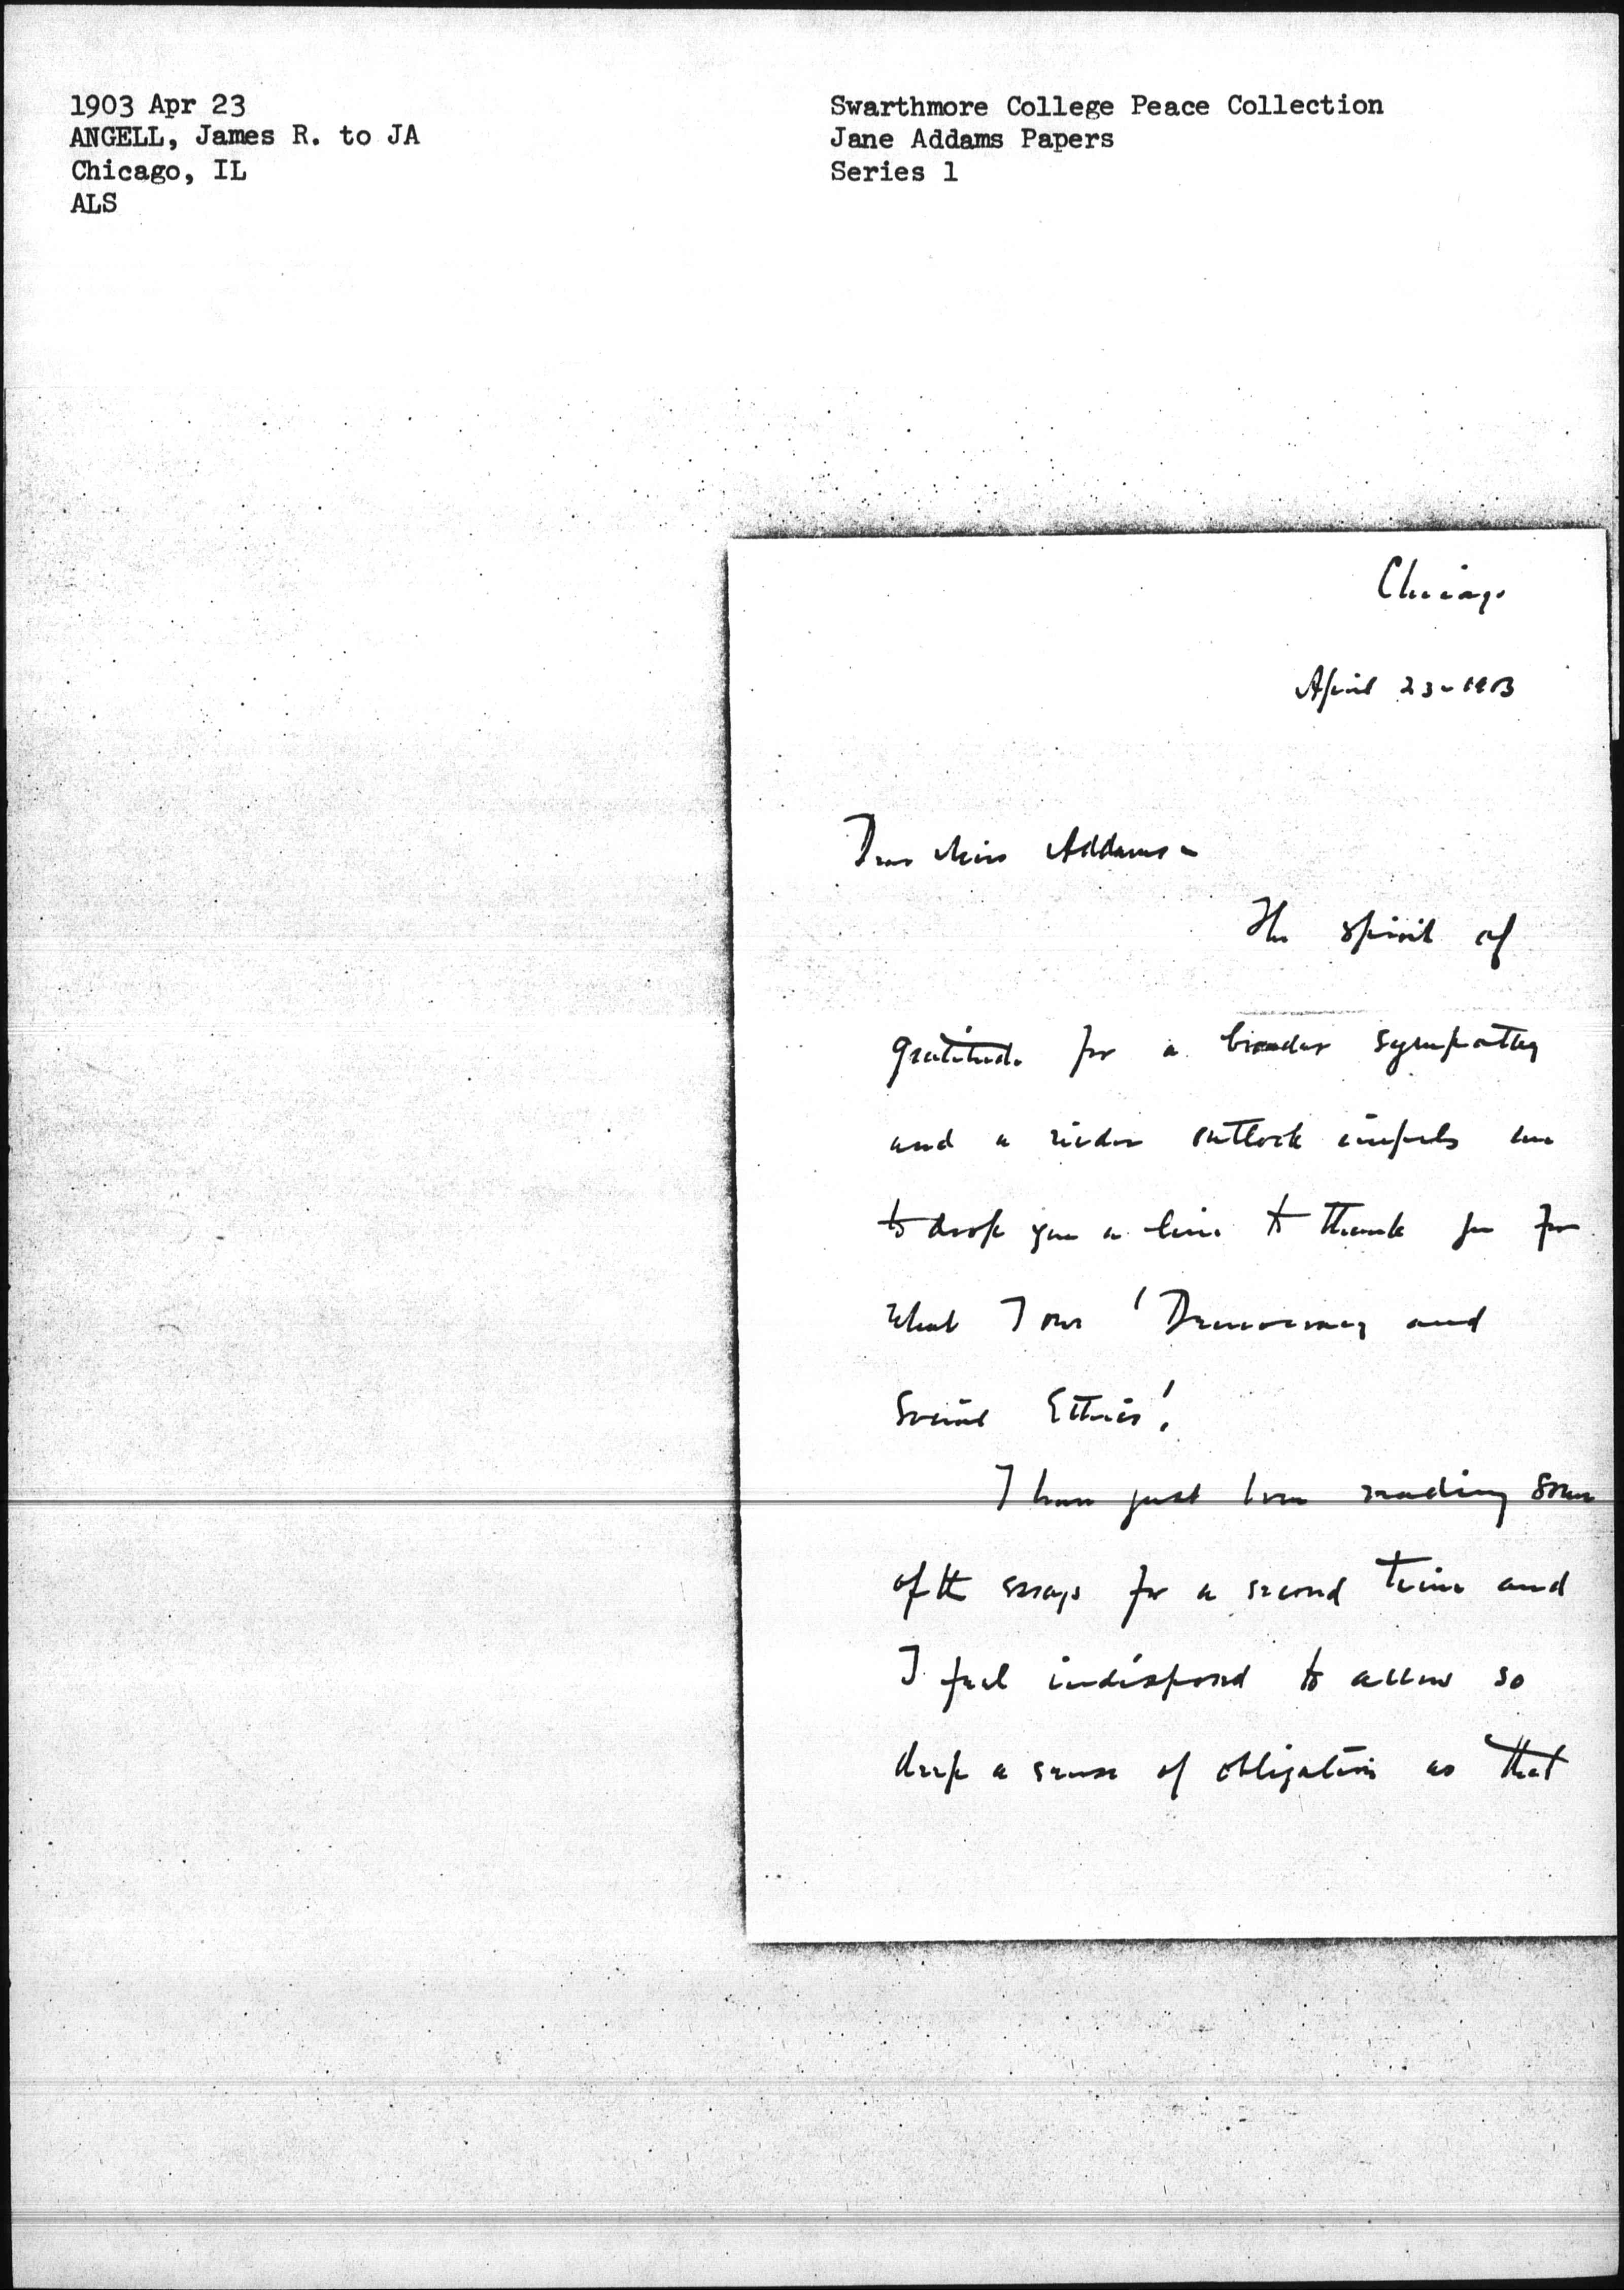 1903 Apr 23
ANGELL, James R. to JA
Chicago, IL
ALS
Swarthmore College Peace Collection
Jane Addams Papers
Series 1
Chicago
April 23 - 1903
Dear Miss Addams -
The spirit of
gratitude for a broader sympathy
and a wider outlook impels me
to drop you a line to thank you for
what I owe 'Democracy and
Social Ethics'.
I have just been reading some
of the essays for a second time and
I feel indisposed to allow so
deep a sense of obligation as that